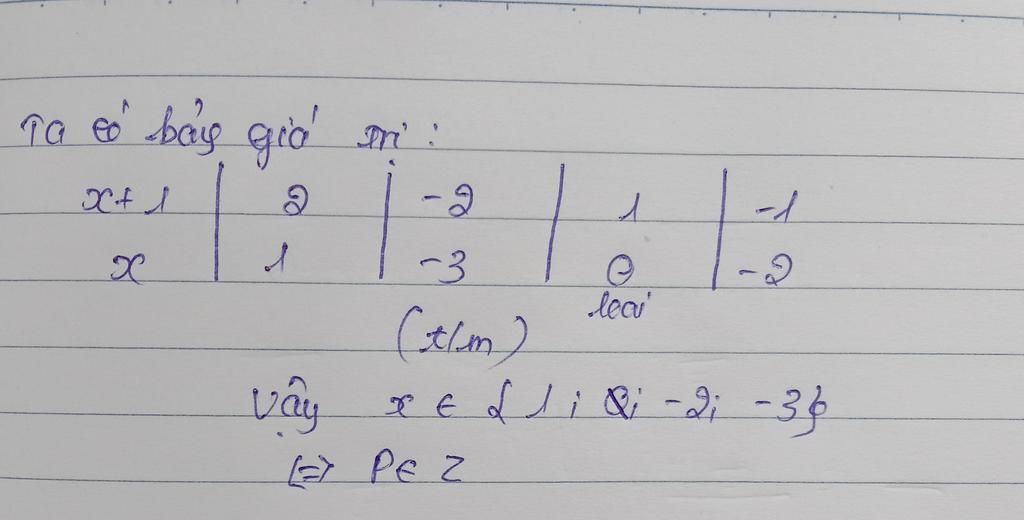 Ta có bảg giá trị:
x+1 | 2 | -2 | 1 | -1
x | 1 | -3 | 0 | -2
loại
(t/m)
Vậy x ∈ { 1; -2; -3}
<=> P ∈ Z